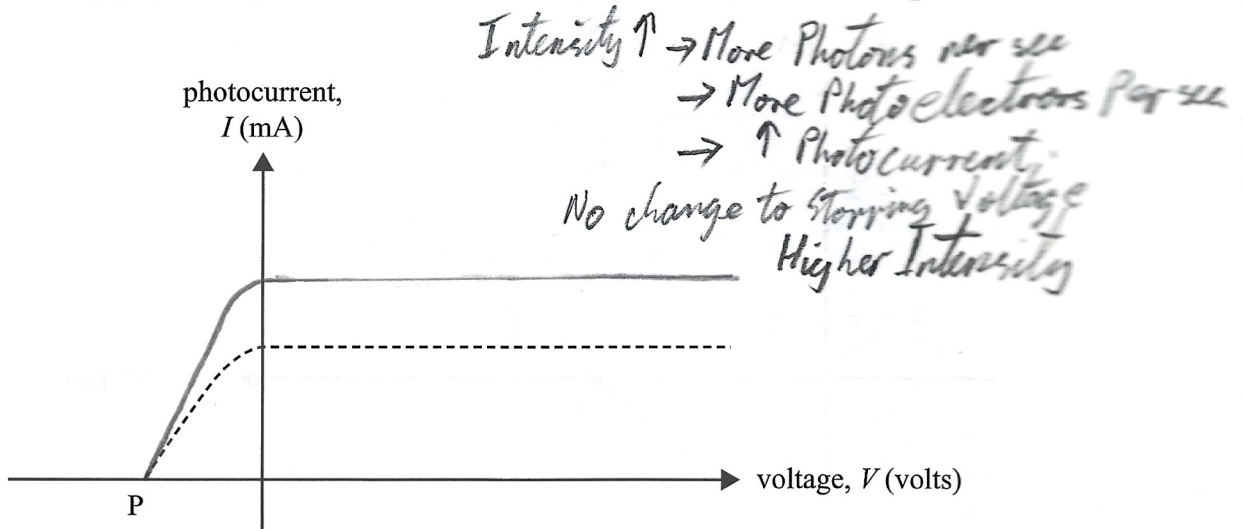 Intensity ↑ → More Photons per sec
→ More Photoelectrons Per sec
→ ↑ Photocurrent.
No change to Stopping Voltage
Higher Intensity
photocurrent,
I (mA)
voltage, V (volts)
P